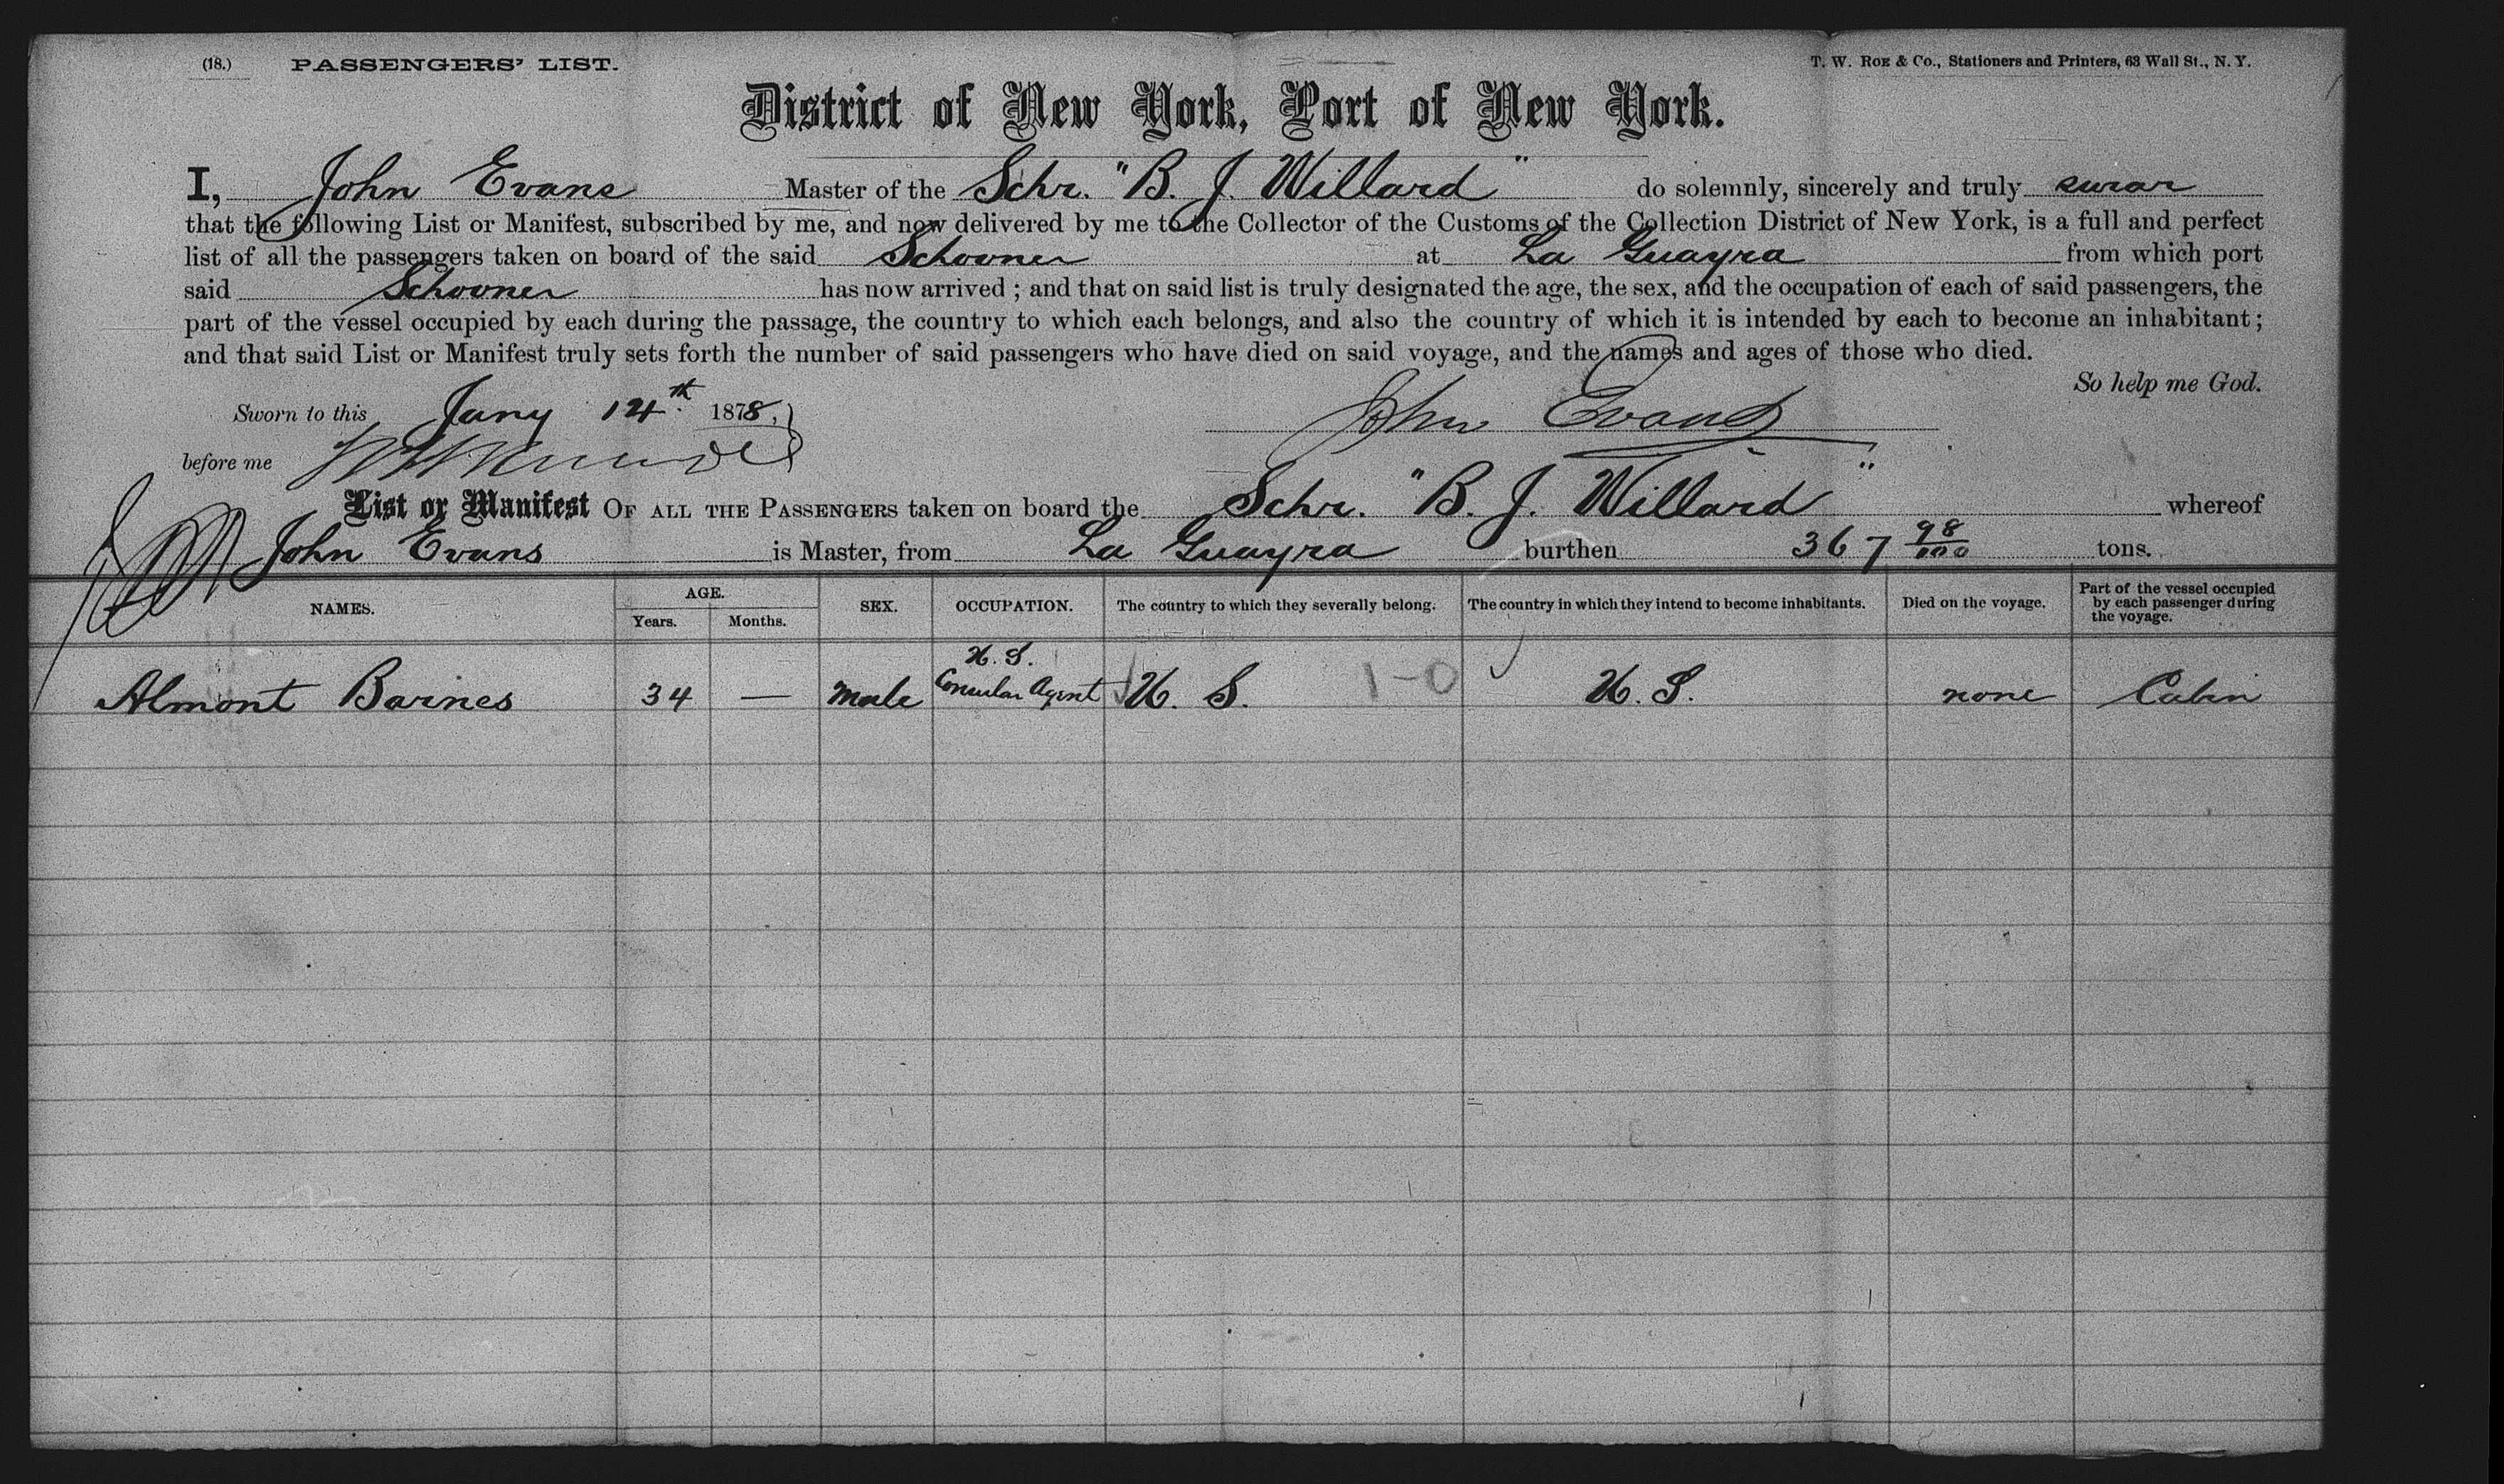 (18.) PASSENGERS' LIST. T. W. ROE & CO., Stationers and Printers, 63 Wall St., N. Y.
District of New York, Port of New York.
I, John Evans Master of the Schr. "B. J. Willard" do solemnly, sincerely and truly swear
that the following List or Manifest, subscribed by me, and now delivered by me to the Collector of the Customs of the Collection District of New York, is a full and perfect
list of all the passengers taken on board of the said Schooner at La Guayra from which port
said Schooner has now arrived ; and that on said list is truly designated the age, the sex, and the occupation of each of said passengers, the
part of the vessel occupied by each during the passage, the country to which each belongs, and also the country of which it is intended by each to become an inhabitant ;
and that said List or Manifest truly sets forth the number of said passengers who have died on said voyage, and the names and ages of those who died.
So help me God.
Sworn to this Jany 14th. 1878, John Evans
before me
List or Manifest OF ALL THE PASSENGERS taken on board the Schr. "B. J. Willard" whereof
John Evans is Master, from La Guayra burthen 367 98/100 tons.
NAMES. AGE. Years. Months. SEX. OCCUPATION. The country to which they severally belong. The country in which they intend to become inhabitants. Died on the voyage. Part of the vessel occupied by each passenger during the voyage.
Almont Barnes 34 — Male U. S. Consular Agent U. S. 1-0 U. S. none Cabin